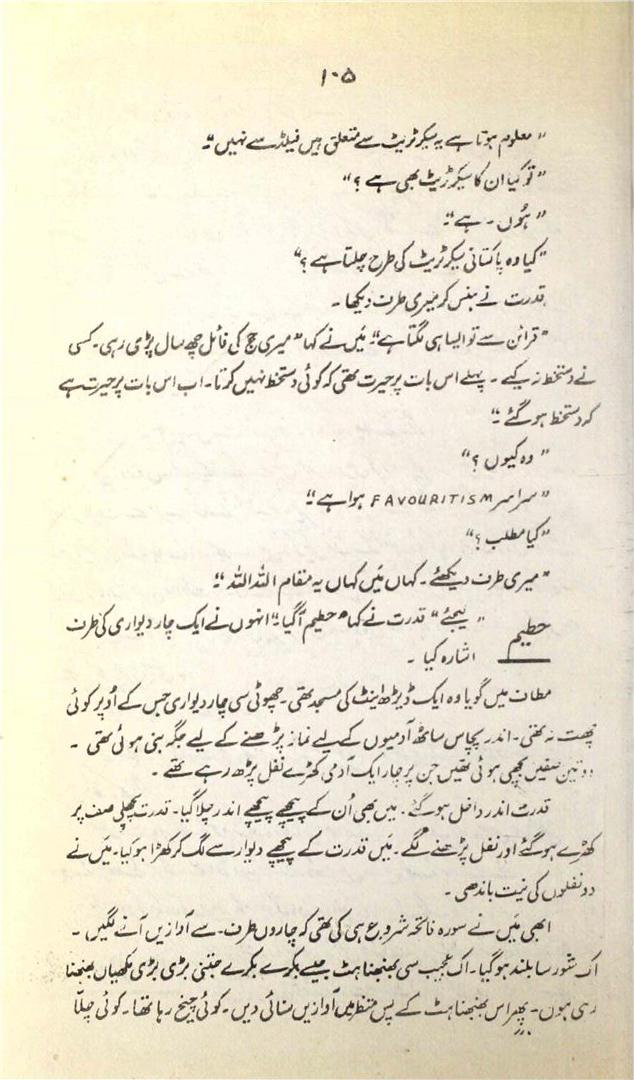 ۱۰۵
"معلوم ہوتا ہے یہ سیکرٹریٹ سے متعلق ہیں فیلڈ سے نہیں"۔
"تو کیا ان کا سیکرٹریٹ بھی ہے؟"
"ہُوں۔ ہے"۔
"کیا وہ پاکستانی سیکرٹریٹ کی طرح چلتا ہے؟"
قدرت نے ہنس کر میری طرف دیکھا۔
"قرائن سے تو ایسا ہی لگتا ہے"۔ مَیں نے کہا "میری حج کی فائل چھ سال پڑی رہی۔ کسی
نے دستخط نہ کیے۔ پہلے اس بات پر حیرت تھی کہ کوئی دستخط نہیں کرتا۔ اب اس بات پر حیرت ہے
کہ دستخط ہو گئے"۔
"وہ کیوں؟"
"سراسر FAVOURITISM ہوا ہے"۔
"کیا مطلب؟"
"میری طرف دیکھئے۔ کہاں مَیں کہاں یہ مقام اللہ اللہ"۔
حطیم "لیجئے" قدرت نے کہا "حطیم آ گیا" انہوں نے ایک چار دیواری کی طرف
اشارہ کیا۔
مطاف میں گویا وہ ایک ڈیڑھ اینٹ کی مسجد تھی۔ چھوٹی سی چار دیواری جس کے اُوپر کوئی
چھت نہ تھی۔ اندر پچاس ساٹھ آدمیوں کے لیے نماز پڑھنے کے لیے جگہ بنی ہوئی تھی۔
دو تین صفیں بچھی ہوئی تھیں جن پر چار ایک آدمی کھڑے نفل پڑھ رہے تھے۔
قدرت اندر داخل ہو گئے۔ میں بھی اُن کے پیچھے پیچھے اندر چلا گیا۔ قدرت پچھلی صف پر
کھڑے ہو گئے اور نفل پڑھنے لگے۔ مَیں قدرت کے پیچھے دیوار سے لگ کر کھڑا ہو گیا۔ مَیں نے
دو نفلوں کی نیت باندھی۔
ابھی مَیں نے سورہ فاتحہ شروع ہی کی تھی کہ چاروں طرف سے آوازیں آنے لگیں۔
اک شور سا بلند ہو گیا۔ اک عجیب سی بھنبھناہٹ جیسے بکرے بکرے جتنی بڑی بڑی مکھیاں بھنبھنا
رہی ہوں۔ پھر اس بھنبھناہٹ کے پس منظر میں آوازیں سنائی دیں۔ کوئی چیخ رہا تھا۔ کوئی چلّا